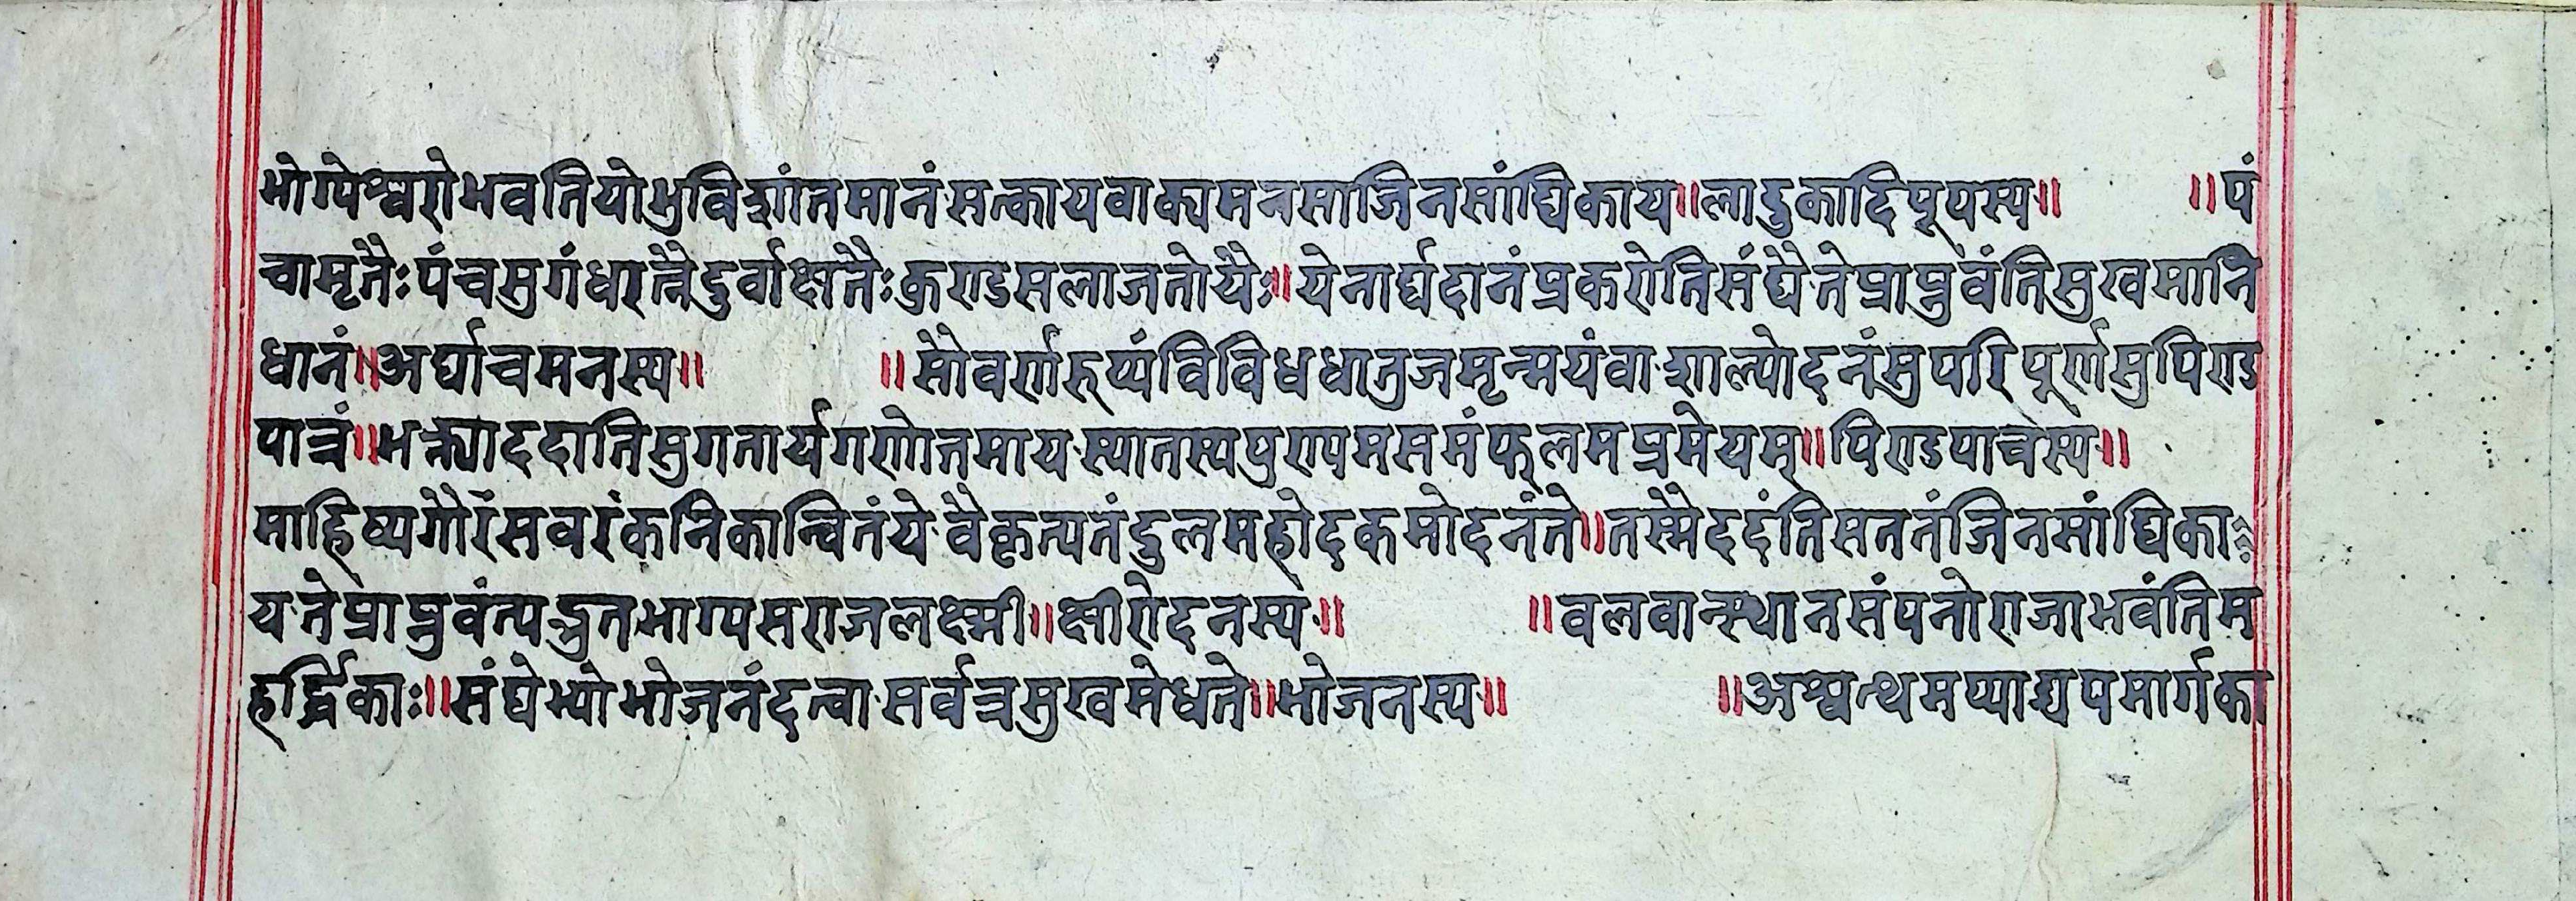 भोग्येश्वरोभवतियोभुविशांतमानंसत्कायवाक्यमनसाजिनसांघिकाय॥लाडुकादिपूपस्य॥ ॥पं
चामृतैःपंचसुगंधरात्नैदुर्वाक्षतैःकुराडसलाजतोयैः॥येनार्घदानंप्रकरोतिसंघैतेप्राप्नुवंतिसुखमानि
धानं॥अर्घाचमनस्य॥ ॥सौवर्णरूप्यंविविधधातुजमृन्मयंवाशाल्योदनंसुपरिपूर्णसुपिण्ड
पात्रं॥भक्त्याददातिसुगतार्यगणोत्तमायस्यात्तस्यपुण्यमसमंफलमप्रमेयम्॥पिण्डपात्रस्य॥
माहिष्यगौरंसवरंकनिकान्वितंयेवैकृत्यतंदुलमहोदकमोदनंते॥तस्मैददंतिसततंजिनसांघिका
यतेप्राप्नुवंत्यद्भुतभाग्यसराजलक्ष्मी॥क्षीरोदनस्य॥ ॥वलवान्स्थानसंपनोराजाभवंतिम
हर्द्धिकाः॥संघेभ्योभोजनंदत्वासर्वत्रसुखमेधते॥भोजनस्य॥ ॥अश्वत्थमप्याद्यपमार्गका